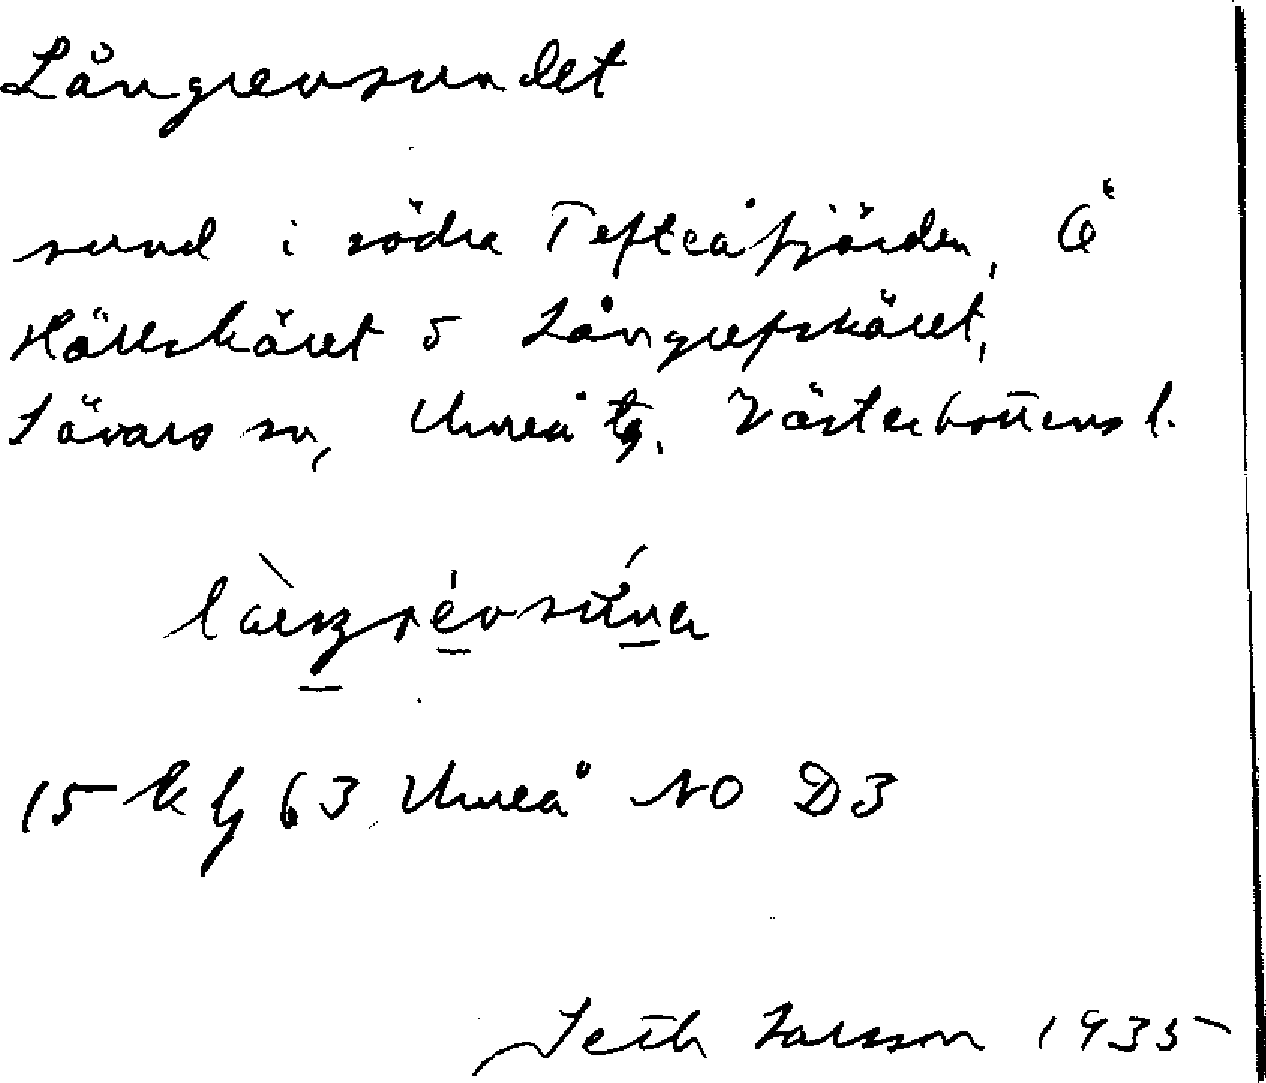 Långrevsundet
sund i södra Tefteåfjärden, Ö
Hällskäret o Långrefskäret,
Sävars sn, Umeå tg. Västerbottens l.
15 k lj 63 Umeå NO D3
Seth Larsson 1935